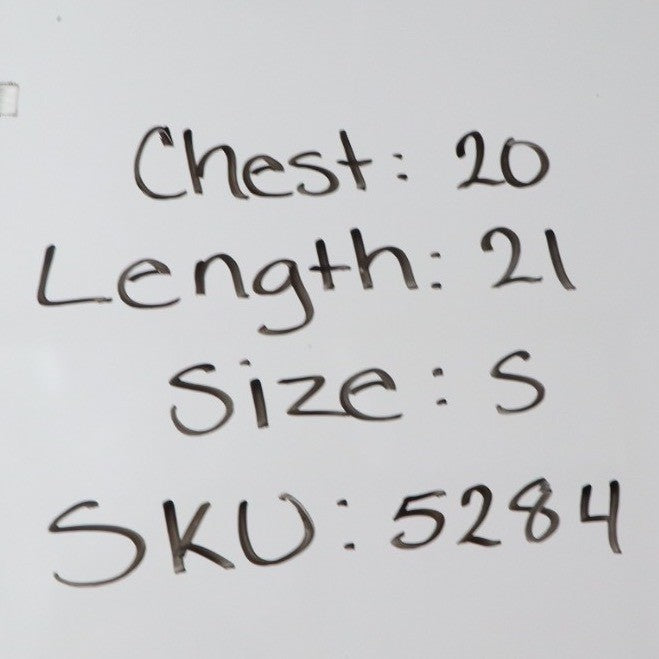 Chest: 20
Length: 21
Size: S
SKU: 5284